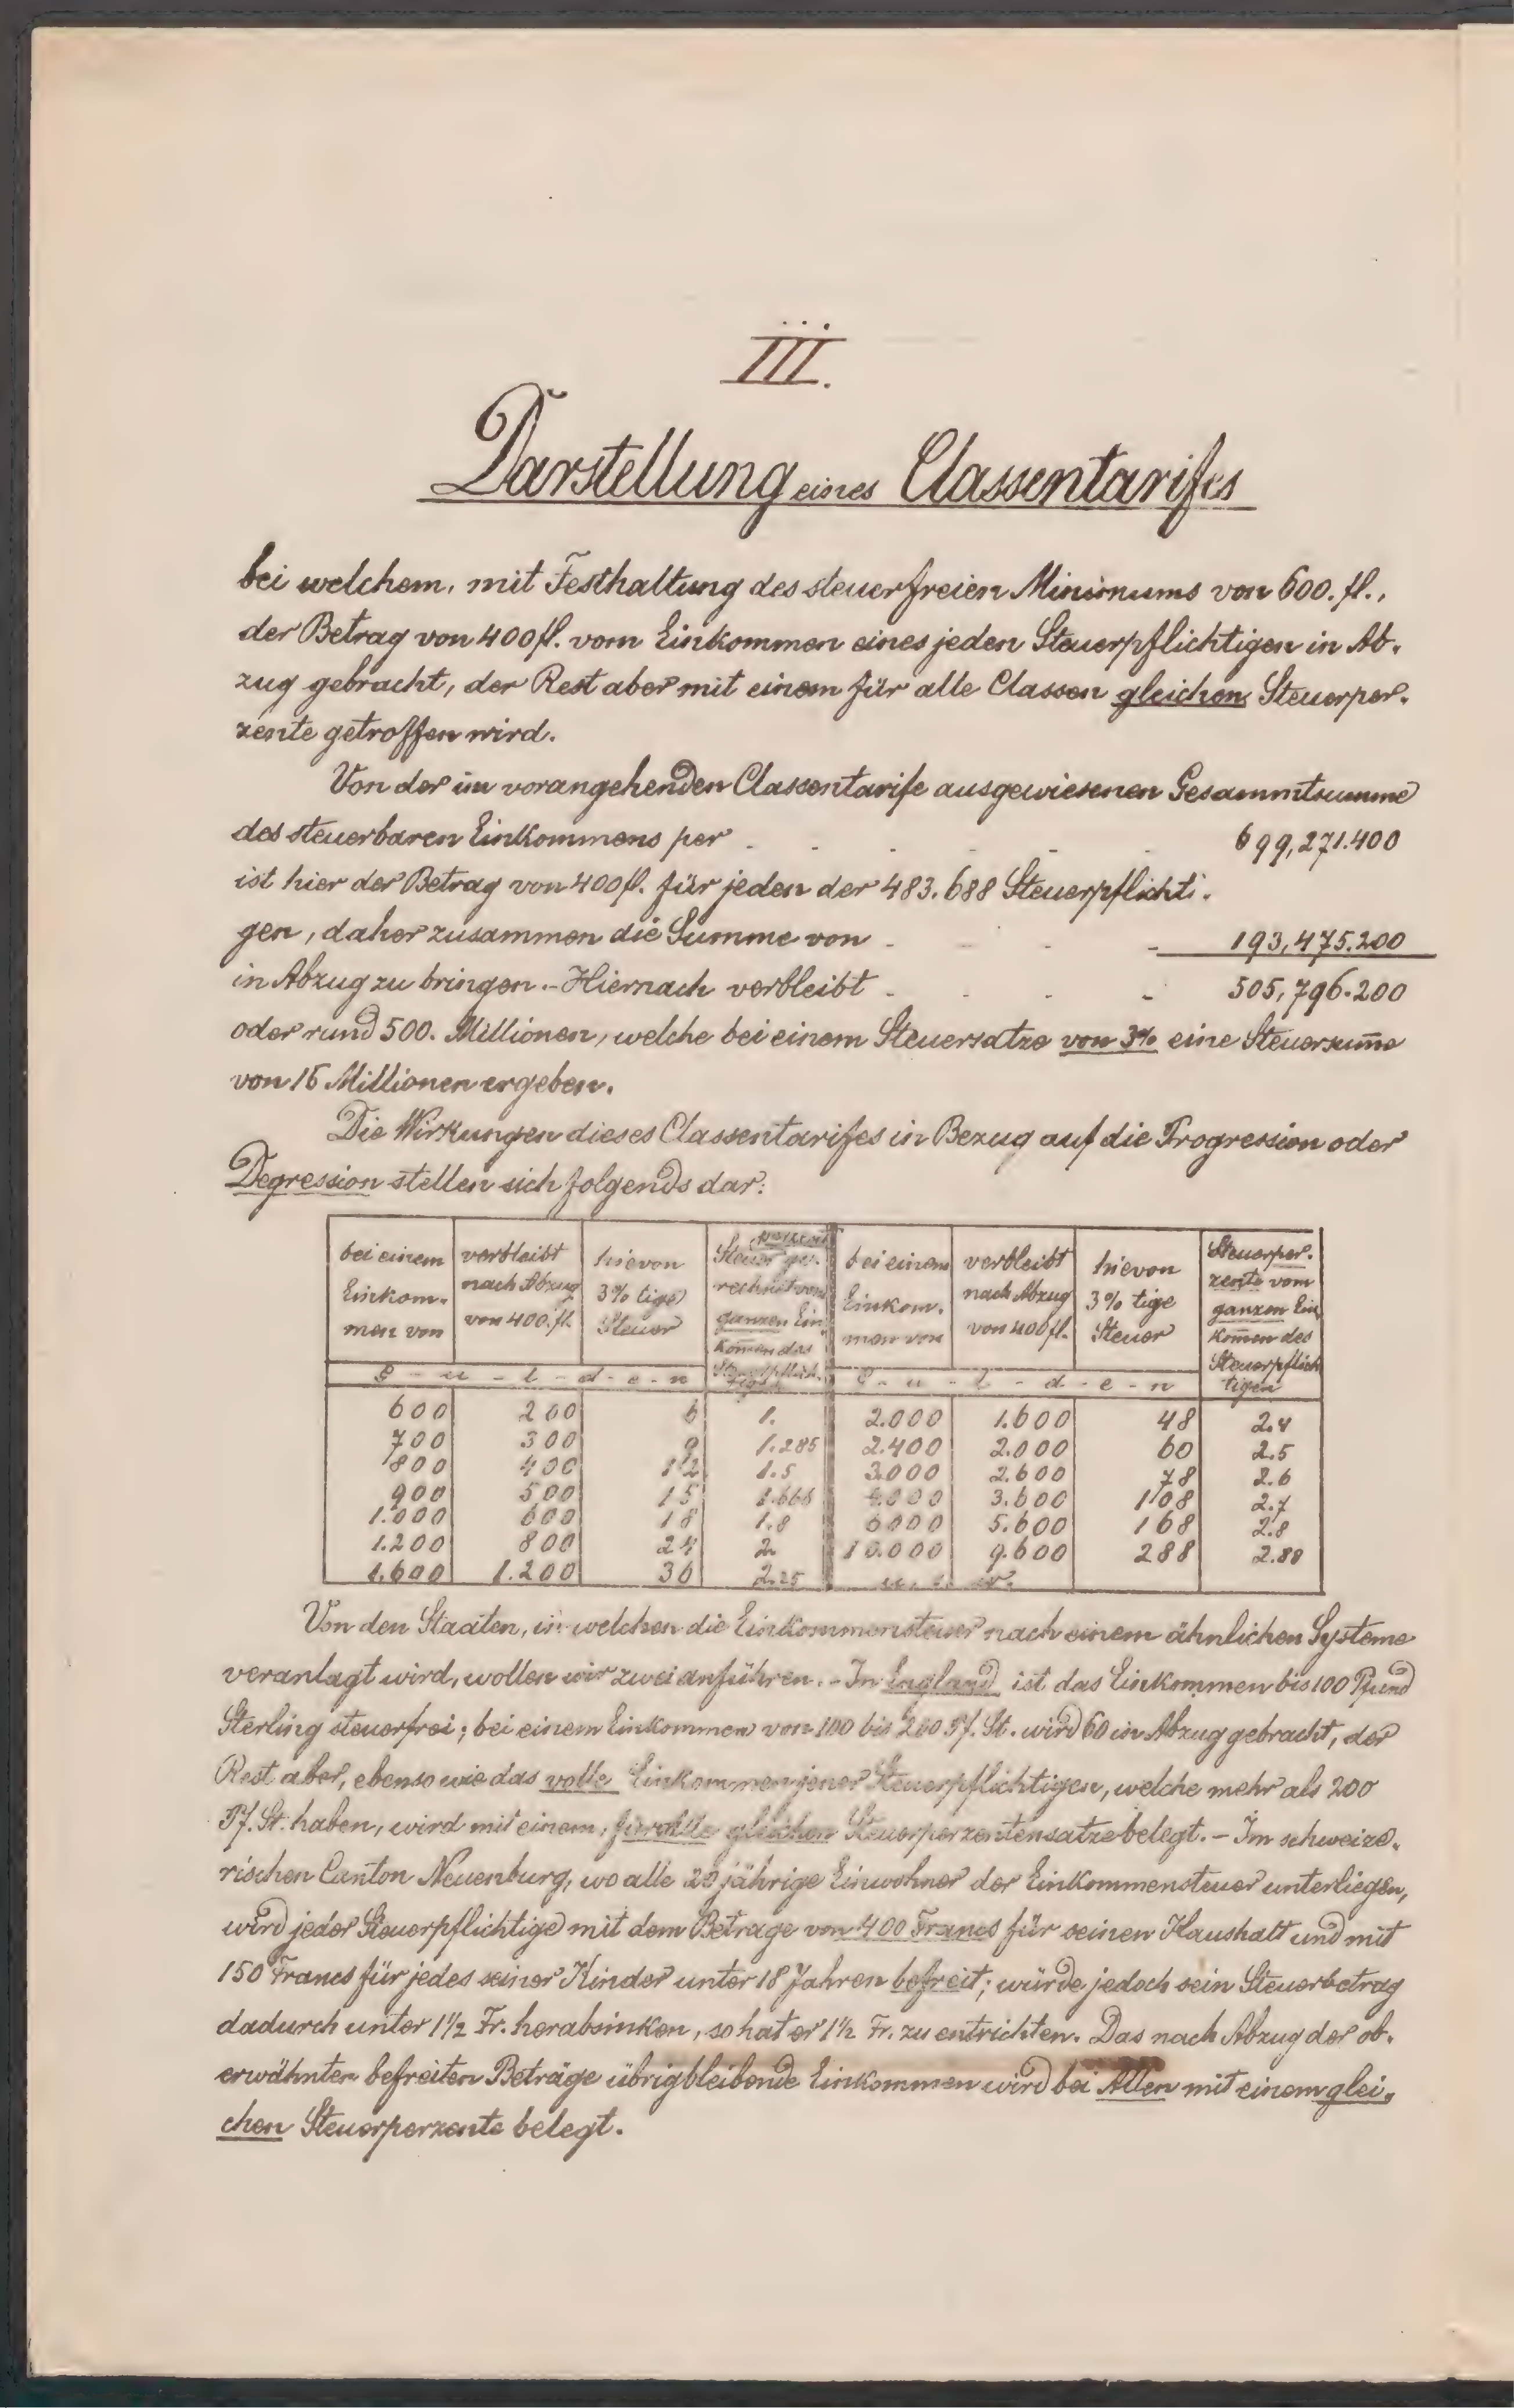 III.
Darstellung eines Classentarifes
bei welchem, mit Festhaltung des steuerfreien Minimums von 600. fl.,
der Betrag von 400 fl. vom Einkommen eines jeden Steuerpflichtigen in Ab-
zug gebracht, der Rest aber mit einem für alle Classen gleichen Steuerper-
zente getroffen wird.
Von der im vorangehenden Classentarife ausgewiesenen Gesammtsumme
des steuerbaren Einkommens per - - - - - 699,271.400
ist hier der Betrag von 400 fl. für jeden der 483.688 Steuerpflichti-
gen, daher zusammen die Summe von - - - - 193,475.200
in Abzug zu bringen. - Hiernach verbleibt - - - - 505,796.200
oder rund 500. Millionen, welche bei einem Steuersatze von 3% eine Steuersum̄e
von 15 Millionen ergeben.
Die Wirkungen dieses Classentarifes in Bezug auf die Progression oder
Degression stellen sich folgends dar:
bei einem Einkom-men von | verbleibt nach Abzug von 400. fl. | hievon 3% tige Steuer | Steuer ge-rechnet vom ganzen Ein-kom̄en des | bei einem Einkom-men von | verbleibt nach Abzug von 400 fl. | hievon 3% tige Steuer | Steuerper-zente vom ganzen Ein-kom̄en des Steuerpflich-tigen
G - u - l - d - e - n | G - u - l - d - e - n
600 | 200 | 6 | 1. | 2.000 | 1.600 | 48 | 2.4
700 | 300 | 9 | 1.285 | 2.400 | 2.000 | 60 | 2.5
800 | 400 | 12 | 1.5 | 3.000 | 2.600 | 78 | 2.6
900 | 500 | 15 | 1.666 | 4.000 | 3.600 | 108 | 2.7
1.000 | 600 | 18 | 1.8 | 6000 | 5.600 | 168 | 2.8
1.200 | 800 | 24 | 2. | 10.000 | 9.600 | 288 | 2.88
1.600 | 1.200 | 36 | 2.25 | u. s. w.
Von den Staaten, in welchen die Einkommensteuer nach einem ähnlichen Systeme
veranlagt wird, wollen wir zwei anführen. - In England ist das Einkommen bis 100 Pfund
Sterling steuerfrei; bei einem Einkommen von 100 bis 200 Pf. St. wird 60 in Abzug gebracht, der
Rest aber, ebenso wie das volle Einkommen jener Steuerpflichtigen, welche mehr als 200
Pf. St. haben, wird mit einem, für Alle gleichen Steuerperzentensatze belegt. - Im schweize-
rischen Canton Neuenburg, wo alle 20 jährige Einwohner der Einkommensteuer unterliegen,
wird jeder Steuerpflichtige mit dem Betrage von 400 Francs für seinen Haushalt und mit
150 Francs für jedes seiner Kinder unter 18 Jahren befreit; würde jedoch sein Steuerbetrag
dadurch unter 1½ Fr. herabsinken, so hat er 1½ Fr. zu entrichten. Das nach Abzug der ob-
erwähnten befreiten Beträge übrigbleibende Einkommen wird bei Allen mit einem glei-
chen Steuerperzente belegt.